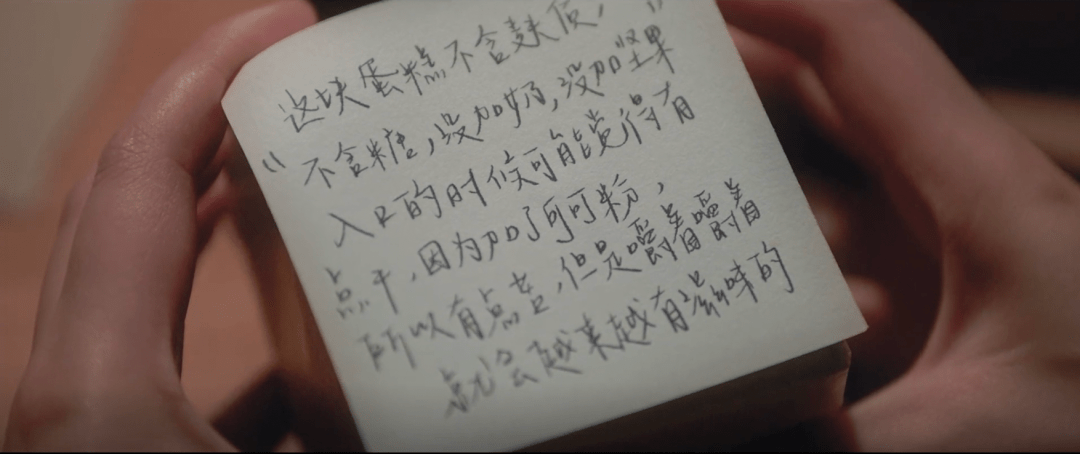 这块蛋糕不含麸质，"
"不含糖，没加奶，没加坚果
入口的时候可能觉得有
点干，因为加了可可粉，
所以有点苦，但是嚼着嚼着
就会越来越有滋味的